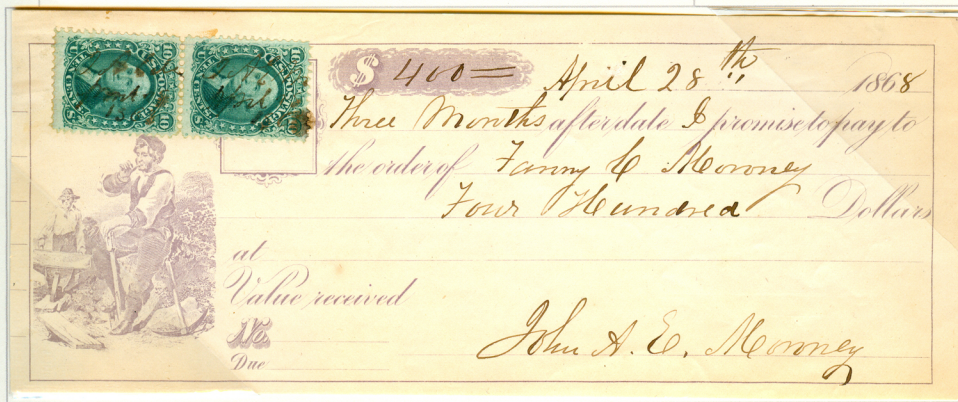 $ 400= April 28th 1868
Three Months after date I promise to pay to
the order of Fanny C Morony
Four Hundred Dollars
at
Value received
No.
Due
John A. E. Morony